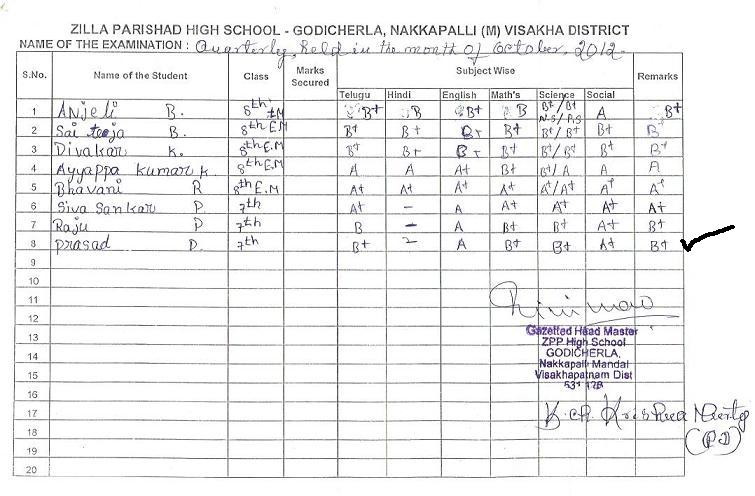 ZILLA PARISHAD HIGH SCHOOL - GODICHERLA, NAKKAPALLI (M) VISAKHA DISTRICT
NAME OF THE EXAMINATION : Quarterly, held in the month of october, 2012.
S.No. Name of the Student Class Marks Secured Subject Wise Remarks
Telugu Hindi English Math's Science Social
1 Anjeli B. 8th EM B+ B B+ B B+/B+ A B+
N.S/P.S
2 Sai teeja B. 8th E.M B+ B+ B+ B+ B+/B+ B+ B+
3 Divakar K. 8th E.M B+ B+ B+ B+ B+/B+ B+ B+
4 Ayyappa kumar K. 8th E.M A A A+ B+ B+/A A A
5 Bhavani R 8th E.M A+ A+ A+ A+ A+/A+ A+ A+
6 Siva Sankar P. 7th A+ - A A+ A+ A+ A+
7 Raju P 7th B - A B+ B+ A+ B+
8 prasad D. 7th B+ - A B+ B+ A+ B+
9
10
11
12
13
14
15
16
17
18
19
20
Gazetted Head Master
ZPP High School
GODICHERLA,
Nakkapalli Mandal
Visakhapatnam Dist
K.ch. Krishna
(PD)